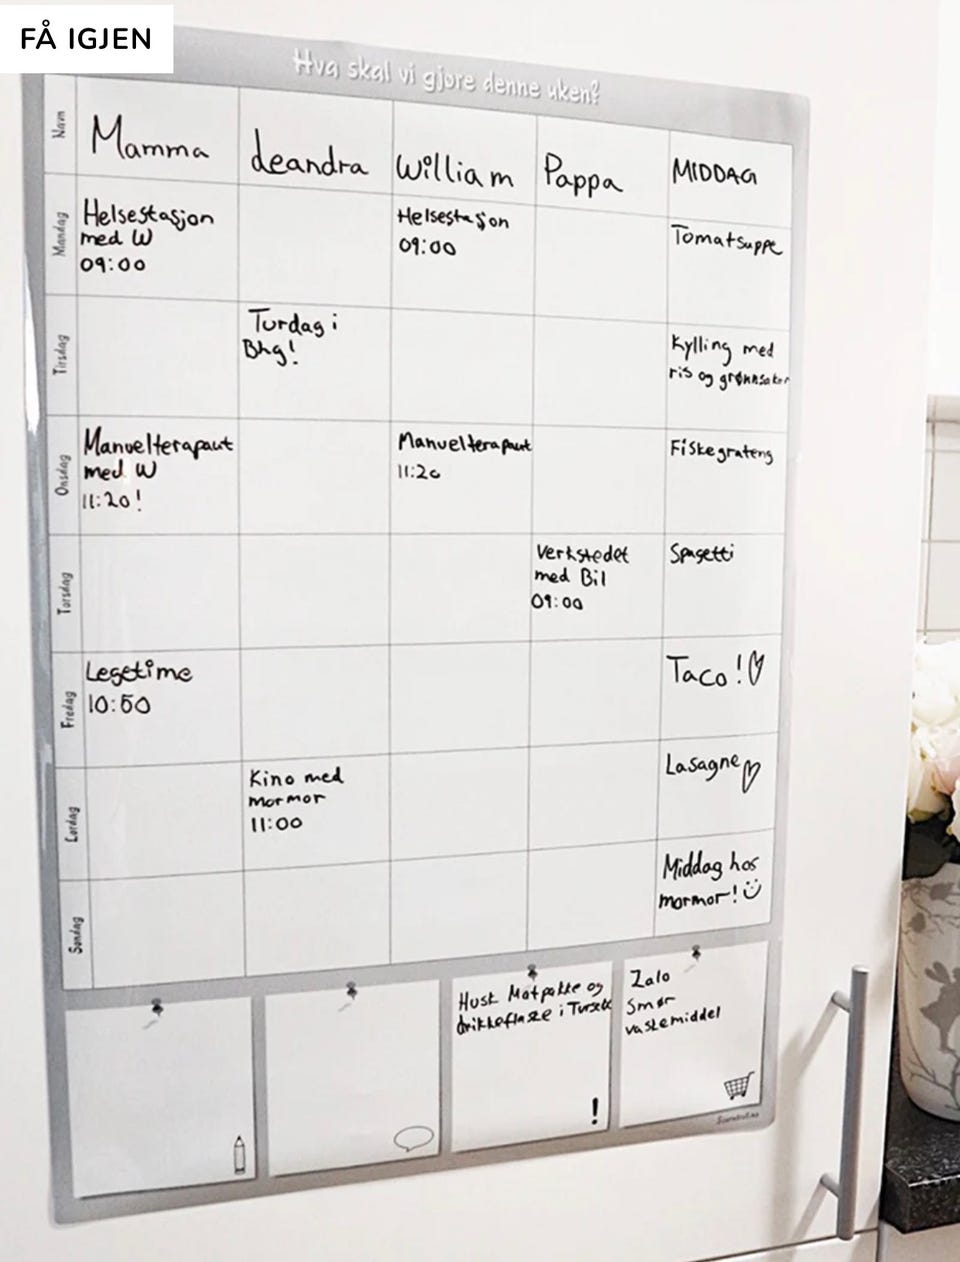 FÅ IGJEN
Hva skal vi gjøre denne uken?
Navn
Mamma
deandra
William
Pappa
MIDDAG
Mandag
Helsestasjon
med W
09:00
Helsestasjon
09:00
Tomatsuppe
Tirsdag
Turdag i
Bhg!
Kylling med
ris og grønnsaker
Onsdag
Manuelterapaut
med W
11:20!
Manuelterapaut
11:20
Fiskegrateng
Torsdag
Verkstedet
med Bil
09:00
Spagetti
Fredag
Legetime
10:50
Taco!
Lørdag
Kino med
mormor
11:00
Lasagne
Søndag
Middag hos
mormor!
Husk Matpakke og
drikkeflaske i Tursekk
!
Zalo
Smør
vaskemiddel